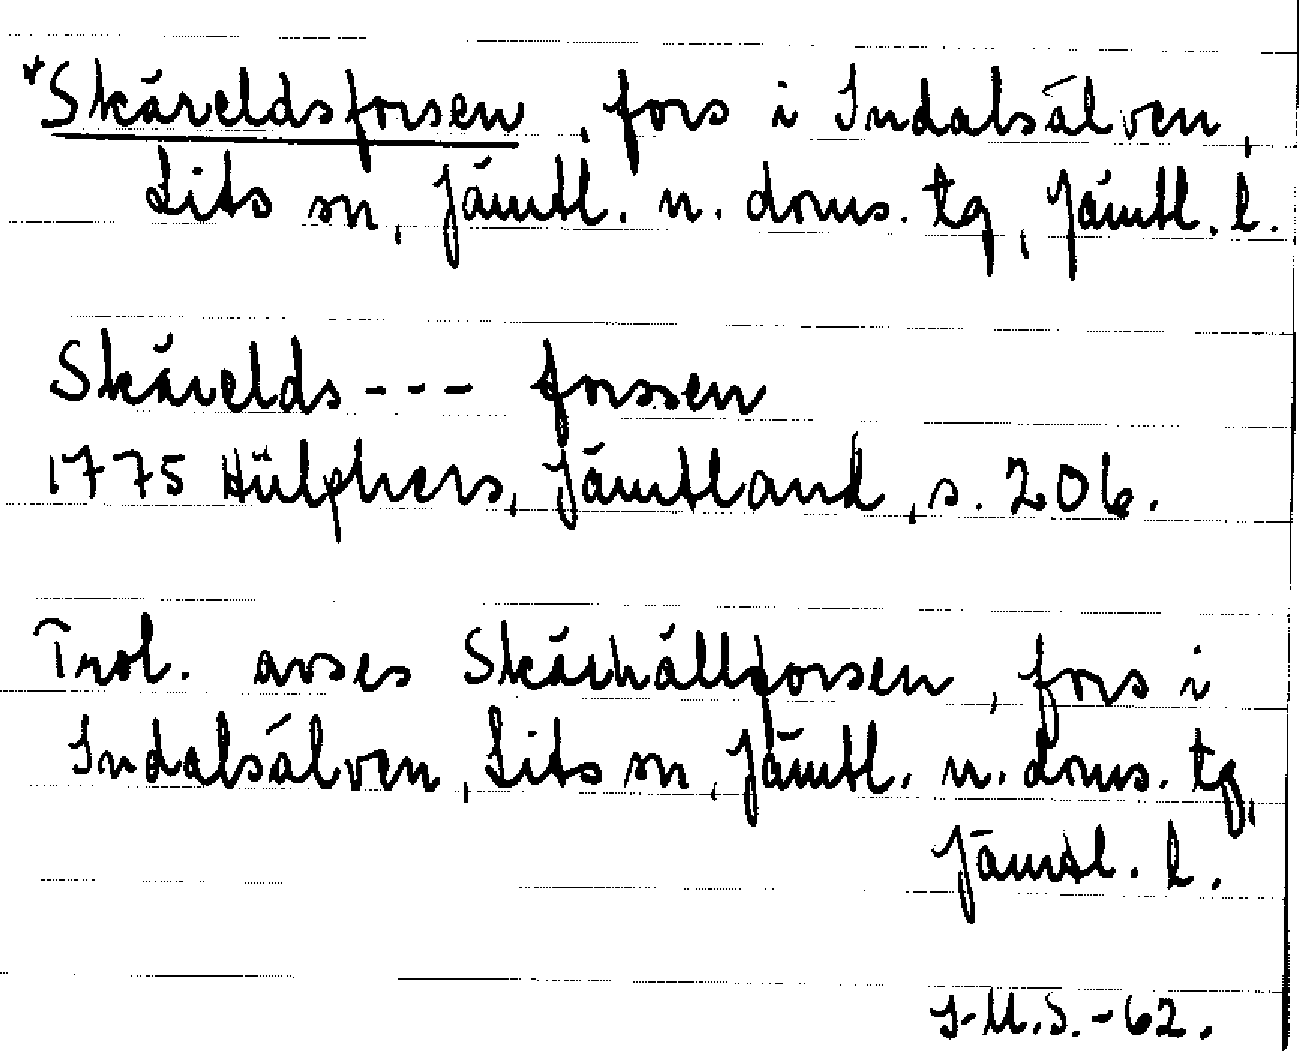 *Skäreldsforsen, fors i Indalsälven,
Lits sn, Jämtl. n. doms. tg, Jämtl. l.
Skärelds--- forssen
1775 Hülphers, Jämtland, s. 206.
Trol. avses Skärhällforsen, fors i
Indalsälven, Lits sn, Jämtl. n. doms. tg,
Jämtl. l.
I-M.S.-62.